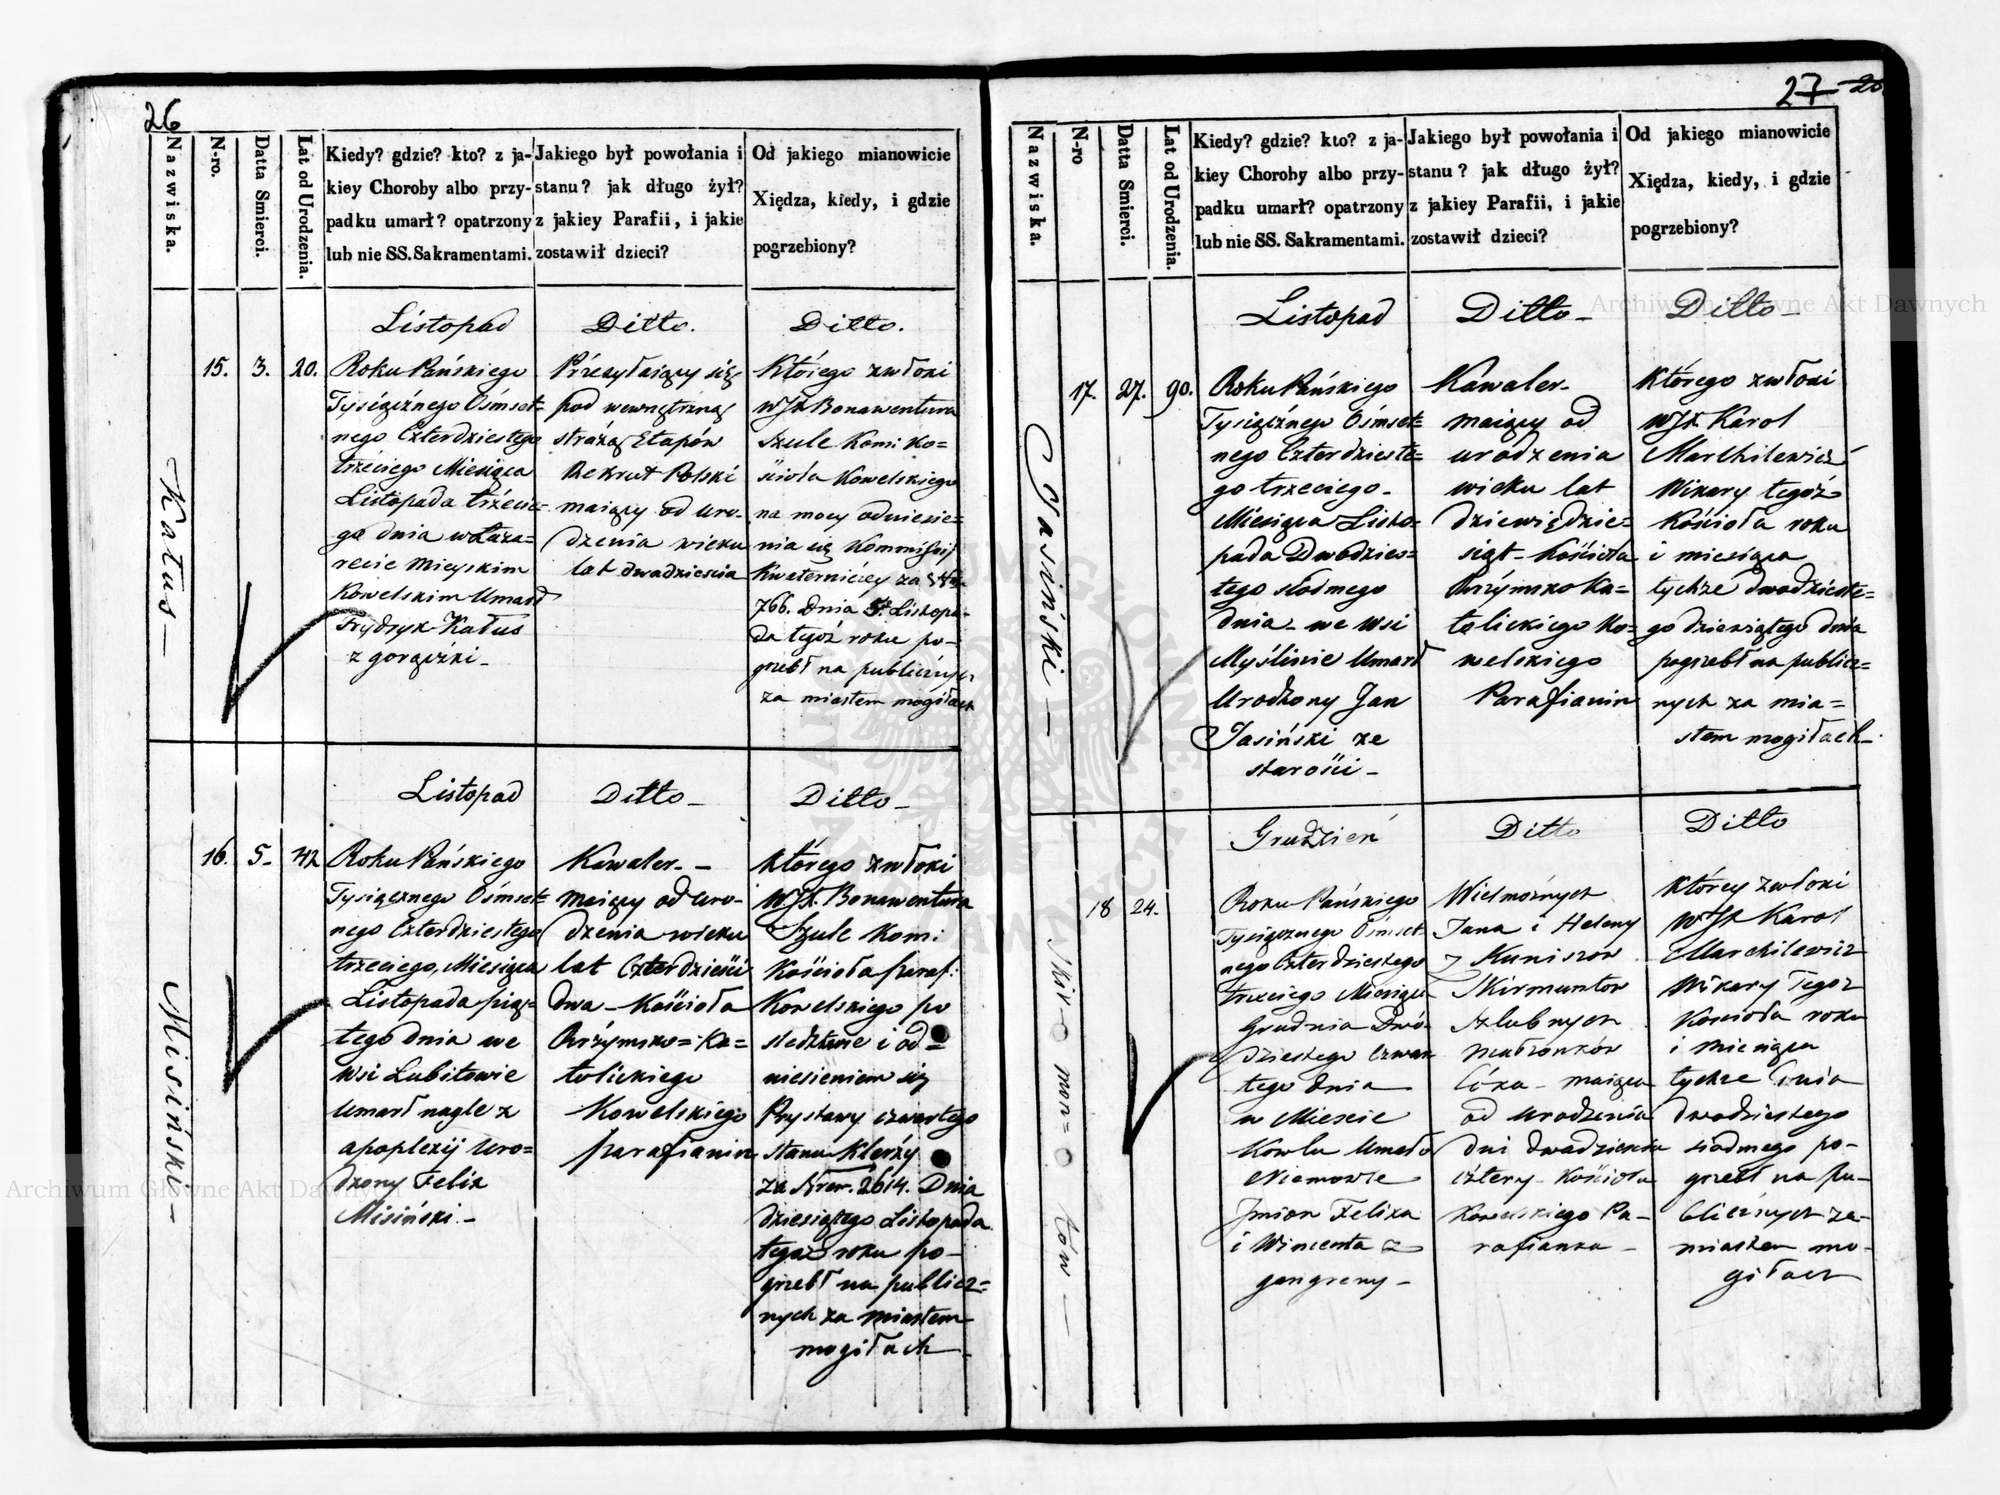 26
Nazwiska.
N-ro.
Datta Smierci.
Lat od Urodzenia.
Kiedy? gdzie? kto? z ja-
kiey Choroby albo przy-
padku umarł? opatrzony
lub nie SS. Sakramentami.
Jakiego był powołania i
stanu? jak długo żył?
z jakiey Parafii, i jakie
zostawił dzieci?
Od jakiego mianowicie
Xiędza, kiedy, i gdzie
pogrzebiony?
Katus —
15.
3.
20.
Listopad
Roku Pańskiego
Tysiącznego Ośmset=
nego Czterdziestego
trzeciego Miesiąca
Listopada trzecie-
go dnia w Łaza-
recie Mieyskim
Kowelskim Umarł
Frydryk Katus
z gorączki -
Ditto.
Przesyłaiący się
pod wewnętrzną
strażą Etapów
Rekrut Polski
maiący od uro-
dzenia wieku
lat dwadzieścia
Ditto.
Którego zwłoki
WJX. Bonawentura
Szule Komi: Ko=
ścioła Kowelskiego
na mocy odniesie=
nia się Kommissij
Kwaterniczey za
766. Dnia 5. Listopa-
da tegoż roku po-
grzebł na publicznych
za miastem mogiłach
Misiński —
16.
5.
42
Listopad
Roku Pańskiego
Tysiącznego Ośmset=
nego Czterdziestego
trzeciego, Miesiąca
Listopada pią=
tego dnia we
Wsi Lubitowie
Umarł nagle z
apoplexij Uro=
dzony Felix
Misiński. -
Ditto -
Kawaler. -
maiący od uro-
dzenia wieku
lat Czterdzieści
dwa - Kościoła
Rzymsko = Ka=
tolickiego
Kowelskiego
parafianin
Ditto -
Którego zwłoki
WJX. Bonawentura
Szule Komi
Kościoła paraf:
Kowelskiego po
śledztwie i od=
niesieniem się
Prystawy czwartego
stanu Klerży
za Nrem. 2614. Dnia
dziesiątego Listopada
tegoż roku po-
grzebł na publicz=
nych za miastem
mogiłach
27
Nazwiska.
N-ro
Datta Smierci.
Lat od Urodzenia.
Kiedy? gdzie? kto? z ja-
kiey Choroby albo przy-
padku umarł? opatrzony
lub nie SS. Sakramentami.
Jakiego był powołania i
stanu? jak długo żył?
z jakiey Parafii, i jakie
zostawił dzieci?
Od jakiego mianowicie
Xiędza, kiedy, i gdzie
pogrzebiony?
Jasiński —
17.
27.
90.
Listopad
Roku Pańskiego
Tysiącznego Ośmset=
nego Czterdzieste=
go trzeciego -
Miesiąca Listo=
pada Dwódzies=
tego siódmego
dnia - we Wsi
Myślinie Umarł
Urodzony Jan
Jasiński ze
starości -
Ditto -
Kawaler -
maiący od
urodzenia
wieku lat
dziewięćdzie=
siąt - Kościoła
Rzymsko Ka=
tolickiego Ko=
welskiego
Parafianin
Ditto -
Którego zwłoki
WJX Karol
Marchilewicz
Wikary tegoż
Kościoła roku
i miesiąca
tychże dwadzieste=
go dziewiątego dnia
pogrzebł na publicz=
nych za mia=
stem mogiłach -
Skirmontów —
18
24.
Grudzień
Roku Pańskiego
Tysiącznego Ośmset
nego Czterdziestego
trzeciego Miesiąca
Grudnia Dwó-
dziestego Czwar
tego dnia
w Mieście
Kowlu Umarło
Niemowle
Jmion Felixa
i Wincenta z
gangreny -
Ditto
Wielmożnych
Jana i Heleny
z Kuniszow
Skirmuntow
Szlubnych
małżonków
Córa - maiąca
od urodzenia
dni dwadzieścia
cztery - Kościoła
Kowelskiego Pa-
rafianka -
Ditto
Którey zwłoki
WJX Karol
Marchilewicz
Wikary Tegoż
Kościoła roku
i miesiąca
tychże dnia
dwadziestego
siodmego po-
grzebł na pu-
blicznych za-
miastem mo-
giłach
Archiwum Główne Akt Dawnych
Archiwum Główne Akt Dawnych